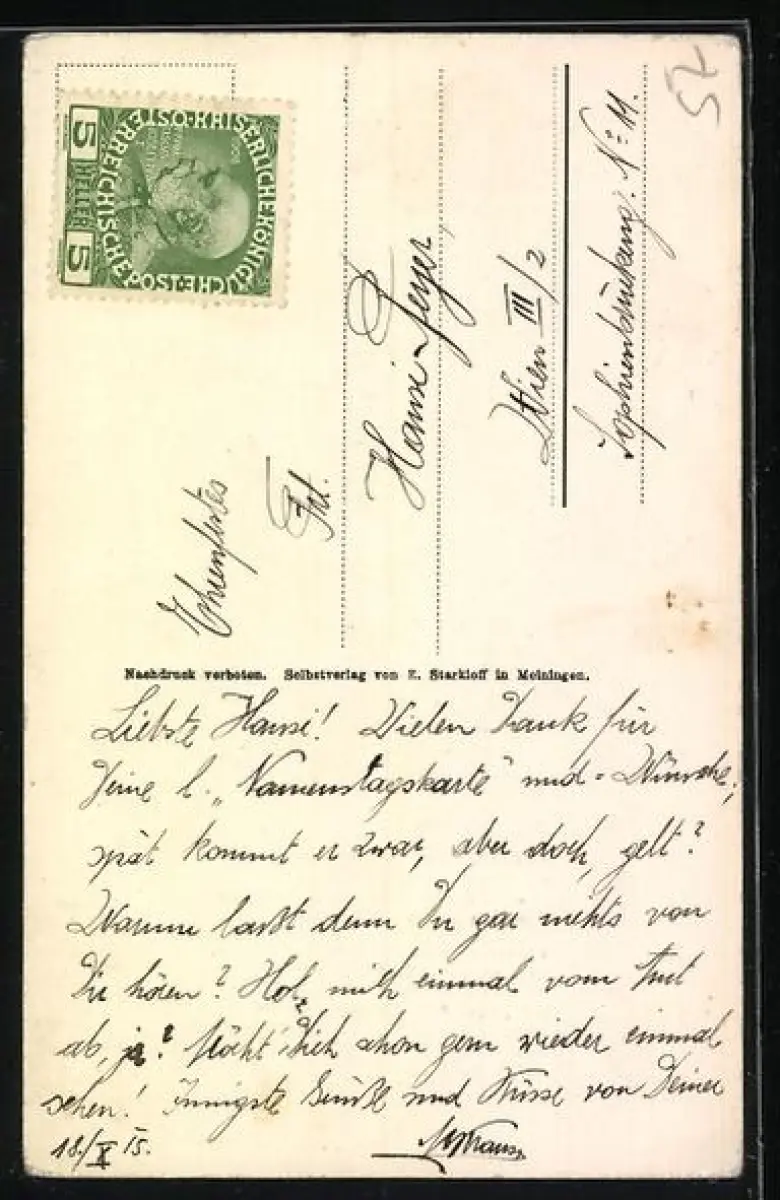 57
KAISERLICHE KÖNIGLICHE ÖSTERREICHISCHE POST
5 HELLER 5
Frl.
Hansi
Wien III/2
No 11.
Nachdruck verboten. Selbstverlag von E. Starkloff in Meiningen.
Liebste Hansi! Vielen Dank für
Deine l. „Namenstagskarte" und - Wünsche,
spät kommt er zwar, aber doch, gelt?
Warum laßt denn Du gar nichts von
Dir hören? Hol mich einmal vom Amt
ab, ja? Möcht' Dich schon gern wieder einmal
sehen! Innigste Grüße und Küsse von Deiner
18./X 15.